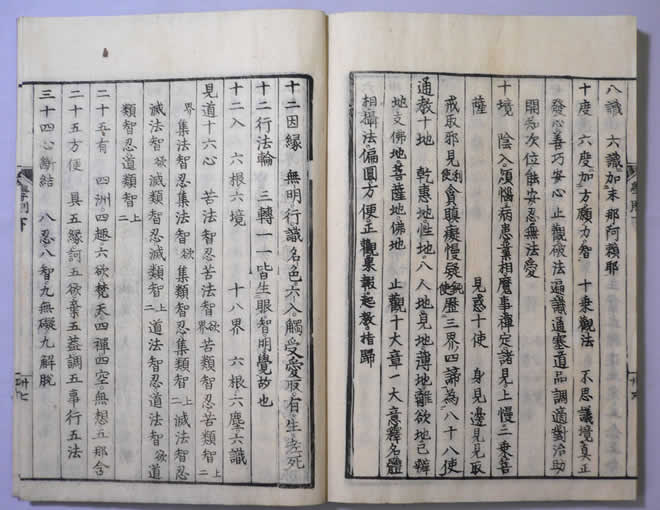 八識 六識加末那阿賴耶
十度 六度加方願力智 十乗觀法 不思議境真正
發心善巧安心止觀破法遍識通塞道品調適對治助
開知次位能安忍無法愛
十境 陰入煩惱病患業相魔事禪定諸見上慢二乗菩
薩 見惑十使 身見邊見見取
戒取邪見利使貪瞋癡慢疑鈍使歴三界四諦為八十八使
通教十地 乾惠地性地八人地見地薄地離欲地已辨
地支佛地菩薩地佛地 止觀十大章 大意釋名體
相攝法偏圓方便正觀果報起教指歸
十二因縁 無明行識名色六入觸受愛取有生老死
十二行法輪 三轉一一皆生眼智明覺故也
十二入 六根六境 十八界 六根六塵六識
見道十六心 苦法智忍苦法智欲界苦類智忍苦類智上二
界集法智忍集法智欲集類智忍集類智上二滅法智忍
滅法智欲滅類智忍滅類智上二道法智忍道法智欲道
類智忍道類智上二
二十五有 四洲四趣六欲梵天四禪四空無想五那含
二十五方便 具五縁訶五欲棄五蓋調五事行五法
三十四心断結 八忍八智九無礙九解脱